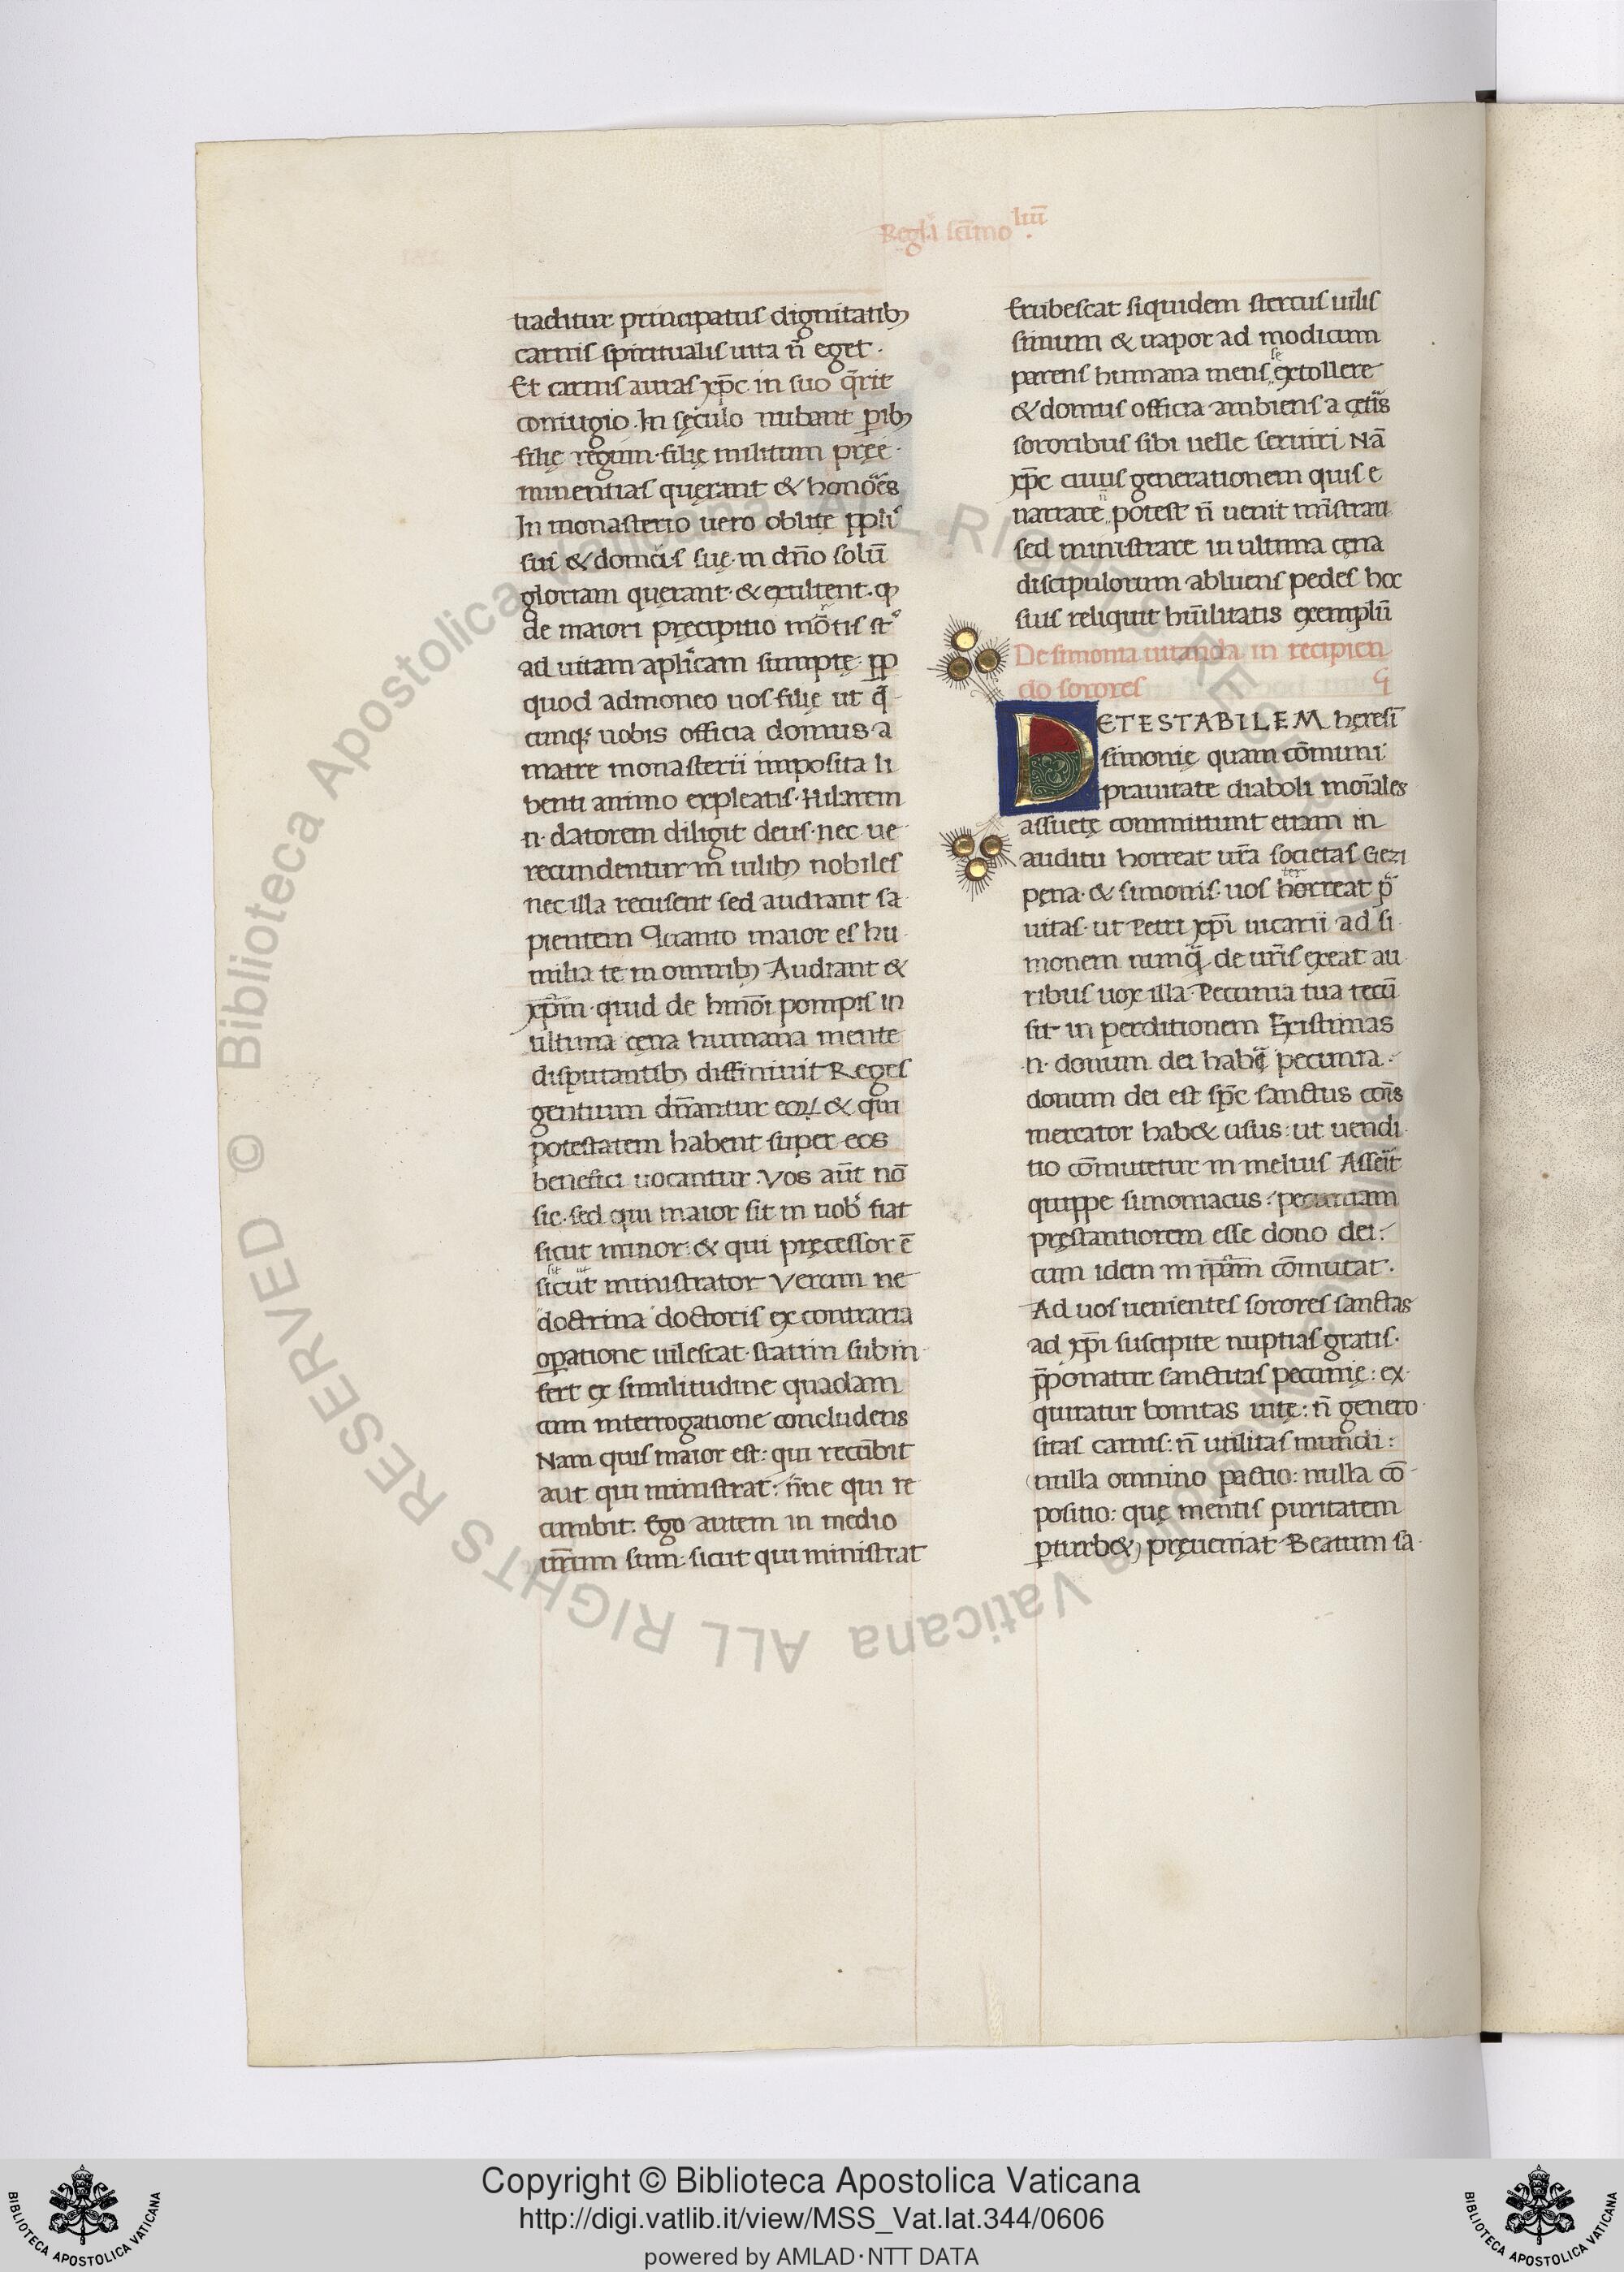 Regl'i scīmo liiii
traditur principatus dignitatibꝫ
carnis spiritualis uita n̄ eget.
Et carnis auras xp̄c in suo q̄rit
coniugio. In sęculo nubant pribꝫ
filię regum. filię militum pręe
minentias quęrant & honores
In monasterio uero oblitę ppli
sui & domus suę in dn̄o solū
gloriam quęrant. & exultent. q
de maiori pręcipitio mōtis st
ad uitam aplicam sumptę. pp
quod admoneo uos filię ut q̄
cunqꝫ uobis officia domus a
matre monasterii imposita li
benti animo expleatis. Hilarem
n. datorem diligit deus. nec ue
recundentur in uilibꝫ nobiles
nec illa recusent sed audiant sa
pientem Quanto maior es hu
milia te in omnibꝫ Audiant &
xp̄m. quid de hmōi pompis in
ultima cęna humana mente
disputantibꝫ diffiniuit Reges
gentium dn̄antur eoꝝ & qui
potestatem habent super eos
benefici uocantur. Vos aūt nō
sic. sed qui maior sit in uob' fiat
sicut minor: & qui pręcessor ē
sit ut
sicut ministrator Verum ne
doctrina doctoris ex contraria
operatione uilescat. statim subin
fert ex similitudine quadam
cum interrogatione concludens
Nam quis maior est: qui recūbit
aut qui ministrat: n̄ne qui re
cumbit. Ego autem in medio
ur̄um sum. sicut qui ministrat
Erubescat siquidem stercus uilis
simum & uapor ad modicum
se
parens humana mens extollere
& domus officia ambiens a cętis
sororibus sibi uelle seruiri Nā
xp̄c cuius generationem quis e
n̄
narrare potest n̄ uenit mīstrari
sed ministrare in ultima cęna
discipulorum abluens pedes hoc
suis reliquit hūilitatis exemplū
De simonia uitanda in recipien
do sorores
DETESTABILEM heresī
simonię quam cōmuni
prauitate diaboli moīales
assuetę committunt etiam in
auditu horreat ur̄a societas Gezi
ter
pęna. & simonis. uos horreat p̄
uitas. ut Petri xp̄i uicarii ad si
monem nunq̄ de ur̄is exeat au
ribus uox illa. Peccunia tua tecū
sit in perditionem Existimas
n. donum dei habēi pecunia.
donum dei est sp̄c sanctus coīs
mercator hab& usus: ut uendi
tio cōmutetur in melius Asserit
quippe simoniacus: pecuniam
pręstantiorem esse dono dei:
cum idem in ip̄am cōmutat.
Ad uos uenientes sorores sanctas
ad xp̄i suscipite nuptias gratis.
p̄ponatur sanctitas pecunię: ex
quiratur bonitas uitę: n̄ genero
sitas carnis: n̄ utilitas mundi:
nulla omnino pactio: nulla cō
positio: quę mentis puritatem
pturb&, pręueniat Beatum sa
© Biblioteca Apostolica Vaticana ALL RIGHTS RESERVED
Copyright © Biblioteca Apostolica Vaticana
http://digi.vatlib.it/view/MSS_Vat.lat.344/0606
powered by AMLAD·NTT DATA
BIBLIOTECA APOSTOLICA VATICANA
BIBLIOTECA APOSTOLICA VATICANA